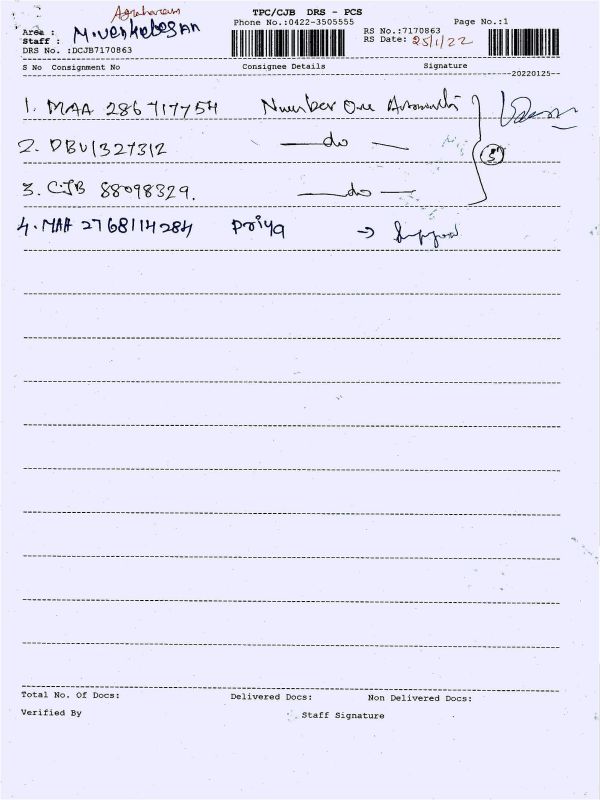 Agraharam
TPC/CJB DRS - PCS
Area :
Phone No.:0422-3505555
Page No.:1
Staff : M.Venkatesan
RS No.:7170863
RS Date: 25/1/22
DRS No. :DCJB7170863
S No Consignment No Consignee Details Signature
--20220125--
1. MAA 286717754 Number One
2. DBV1327312 —do—
3. CJB 88098329. —do—
3
4. MAA 2768114284 Priya →
Total No. Of Docs: Delivered Docs: Non Delivered Docs:
Verified By Staff Signature